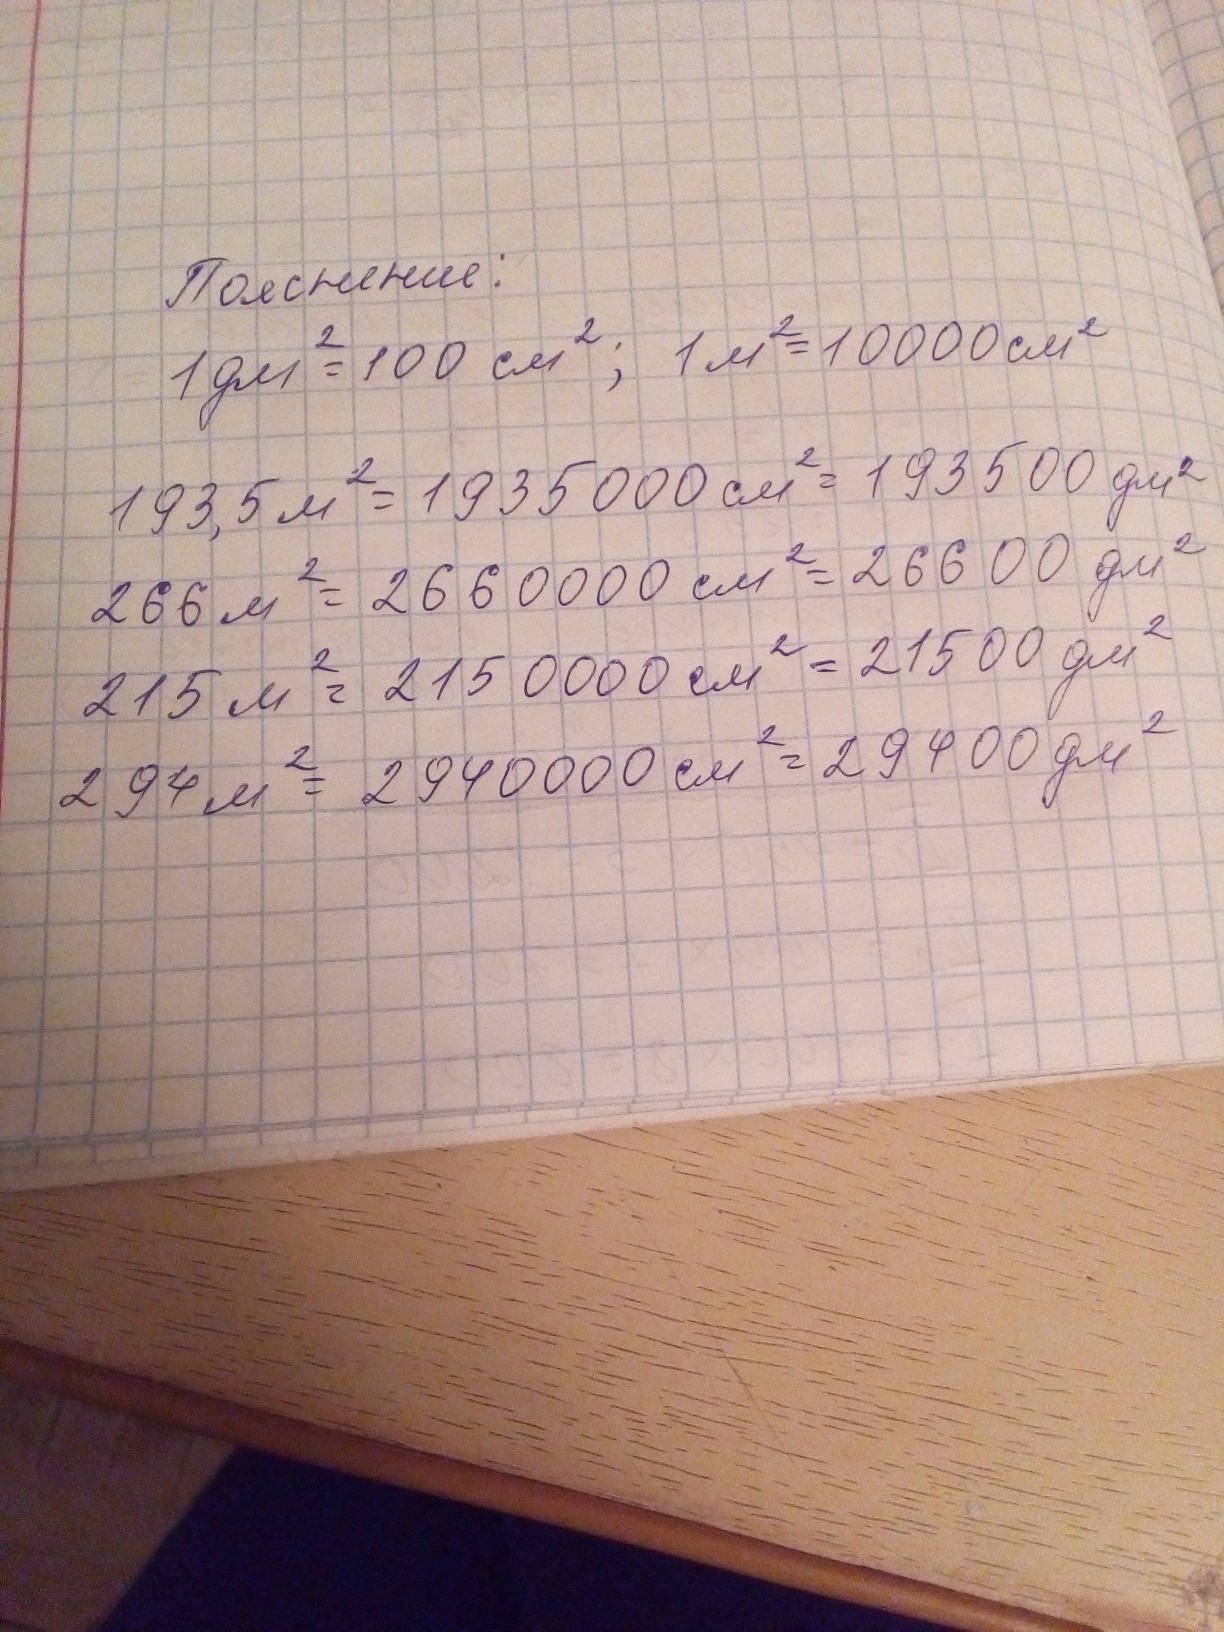 Пояснение:
1дм²=100 см²; 1м²=10000см²
193,5м²=1935000см²=193500дм²
266м²=2660000см²=26600дм²
215м²=2150000см²=21500дм²
294м²=2940000см²=29400дм²